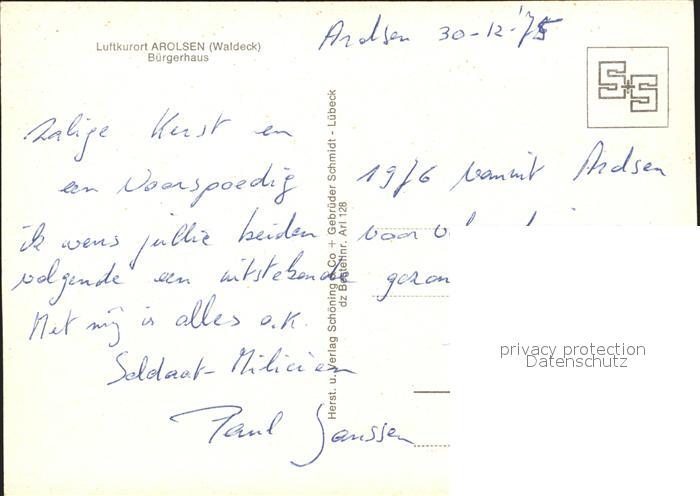 Luftkurort AROLSEN (Waldeck)
Bürgerhaus
Arolsen 30-12-'75
S+S
Zalige Kerst en
een Voorspoedig 1976 vanuit Arolsen
ik wens jullie beiden voor
volgende een uitstekende gezon
Met mij is alles o.k.
Soldaat-Milicien
Paul Janssen
Herst. u. Verlag Schöning & Co + Gebrüder Schmidt - Lübeck
dz Bestellnr. Arl 128
privacy protection
Datenschutz